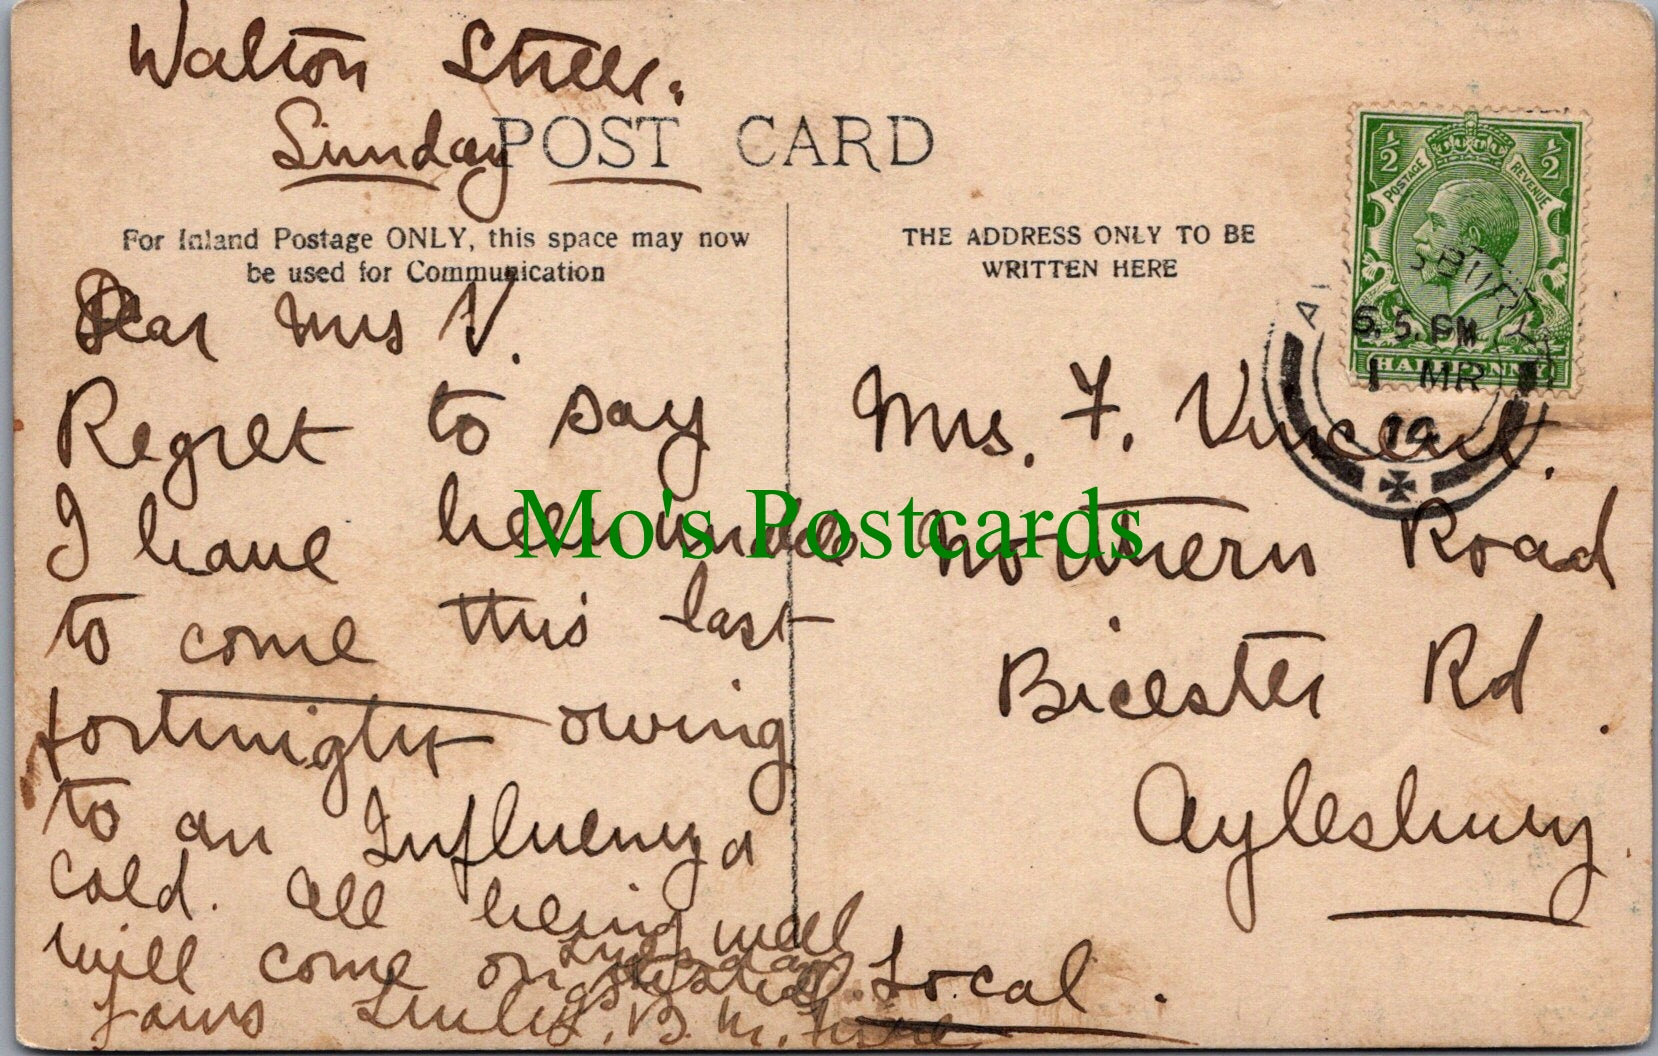 Walton Street.
Sunday
POST CARD
For Inland Postage ONLY, this space may now
be used for Communication
THE ADDRESS ONLY TO BE
WRITTEN HERE
Dear Mrs V.
Regret to say
I have been unable
to come this last
fortnight owing
to an Influenza
cold. All being well
will come on
Yours Truly, B. M.
Mrs. F. Vincent.
Northern Road
Bicester Rd.
Aylesbury
Local.
½ ½
POSTAGE REVENUE
HALFPENNY
5.5.PM
1 MR
14
Mo's Postcards